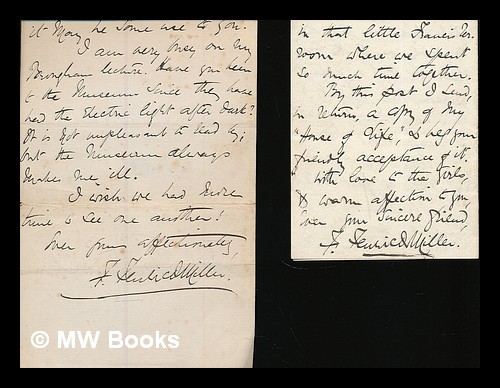 it may be some use to you.
I am very busy on my
Brougham lecture. Have you been
to the Museum since they have
had the Electric light after dark?
It is not unpleasant to read by,
but the Museum always
makes me ill.
I wish we had more
time to see one another!
Ever yours affectionately,
F. Fenwick Miller.
in that little Francis St.
room where we spent
so much time together.
By this post I send,
in return, a copy of my
"House of Life," & beg your
friendly acceptance of it.
With love to the girls,
& warm affection to you,
Ever your sincere friend,
F. Fenwick Miller.
© MW Books